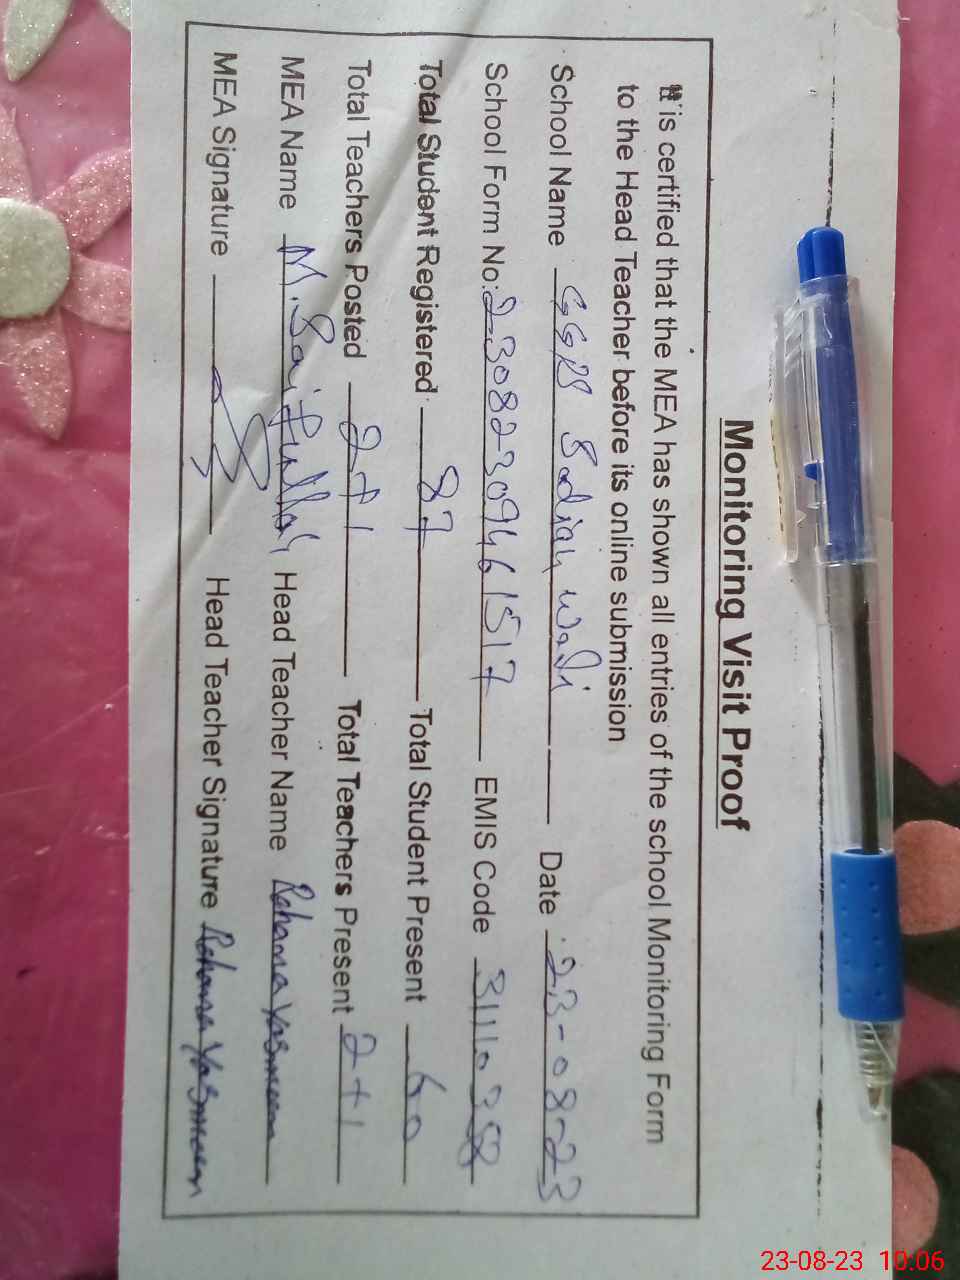 Monitoring Visit Proof
It is certified that the MEA has shown all entries of the school Monitoring Form
to the Head Teacher before its online submission
School Name GGPS Sadiq wali Date 23-08-23
School Form No: 23082309461517 EMIS Code
Total Student Registered 87 Total Student Present 60
Total Teachers Posted 2+1 Total Teachers Present 2+1
MEA Name M. Saifullah Head Teacher Name Rehana Yasmeen
MEA Signature Head Teacher Signature Rehana Yasmeen
23-08-23 10:06